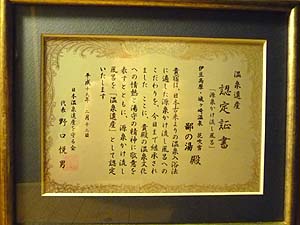 温泉遺産
認定証書
（源泉かけ流し風呂）
伊豆高原・城ヶ崎温泉 花吹雪
鄙の湯 殿
貴宿は、日本古来よりの温泉入浴法
に適した源泉かけ流し風呂への
こだわりを、今日まで継承され
ました ここに、貴殿の温泉文化
への情熱と湯守の精神に敬意を
表すとともに、源泉かけ流し
風呂を「温泉遺産」として認定
いたします
平成十六年 二月十三日
日本温泉遺産を守る会
代表 野口悦男